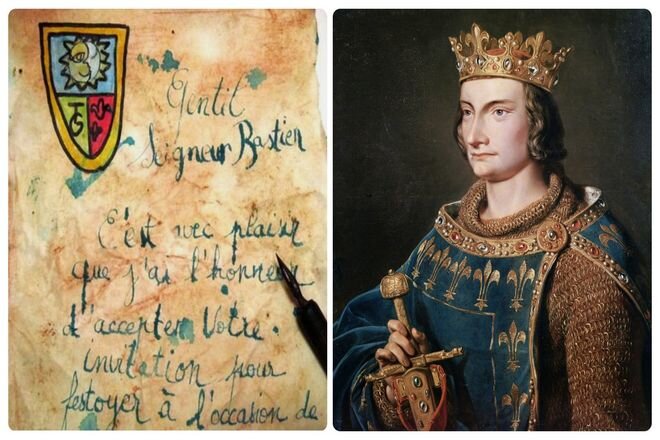 Gentil
Seigneur Bastien
C'est avec plaisir
que j'ai l'honneur
d'accepter Votre
invitation pour
festoyer à l'occasion de